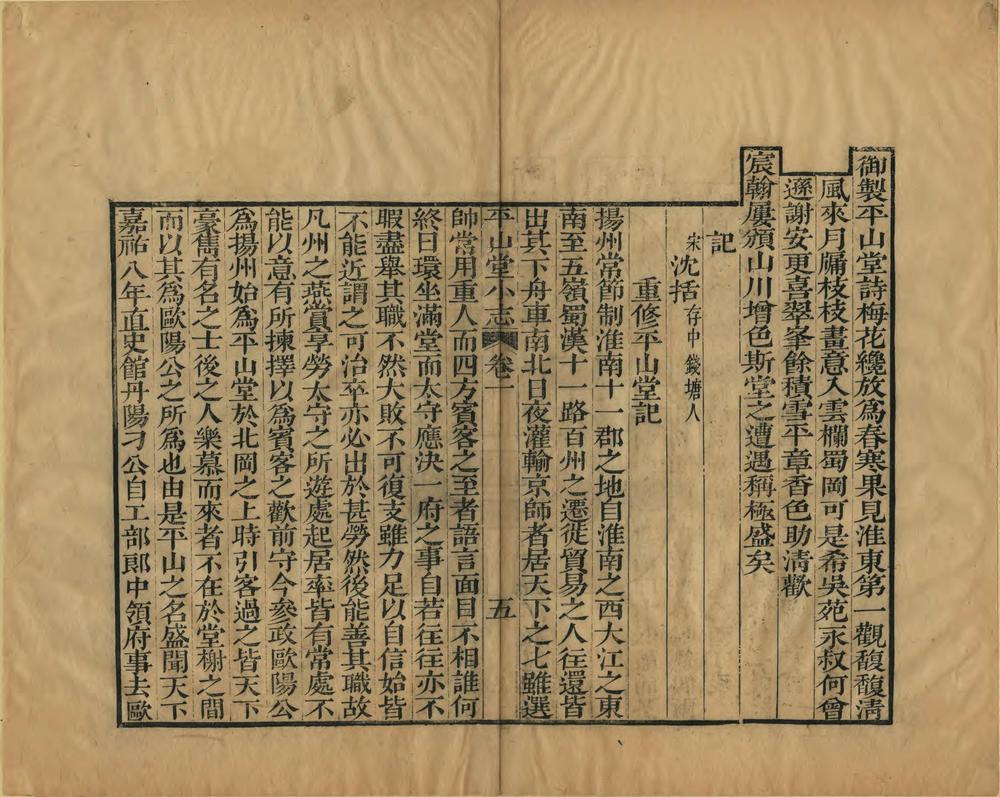 御製平山堂詩梅花纔放為春寒果見淮東第一觀馥馥清
風來月牖枝枝畫意入雲欄蜀岡可是希吳苑永叔何曾
遜謝安更喜翠峯餘積雪平章香色助清歡
宸翰屢頒山川增色斯堂之遭遇稱極盛矣
記
宋沈括存中錢塘人
重修平山堂記
揚州常節制淮南十一郡之地自淮南之西大江之東
南至五嶺蜀漢十一路百州之遷徙貿易之人往還皆
出其下舟車南北日夜灌輸京師者居天下之七雖選
平山堂小志 卷一 五
帥常用重人而四方賓客之至者語言面目不相誰何
終日環坐滿堂而太守應決一府之事自若往往亦不
暇盡舉其職不然大敗不可復支雖力足以自信始皆
不能近謂之可治卒亦必出於甚勞然後能善其職故
凡州之燕賞享勞太守之所遊處起居率皆有常處不
能以意有所揀擇以為賓客之歡前守今參政歐陽公
為揚州始為平山堂於北岡之上時引客過之皆天下
豪雋有名之士後之人樂慕而來者不在於堂榭之間
而以其為歐陽公之所為也由是平山之名盛聞天下
嘉祐八年直史館丹陽刁公自工部郎中領府事去歐